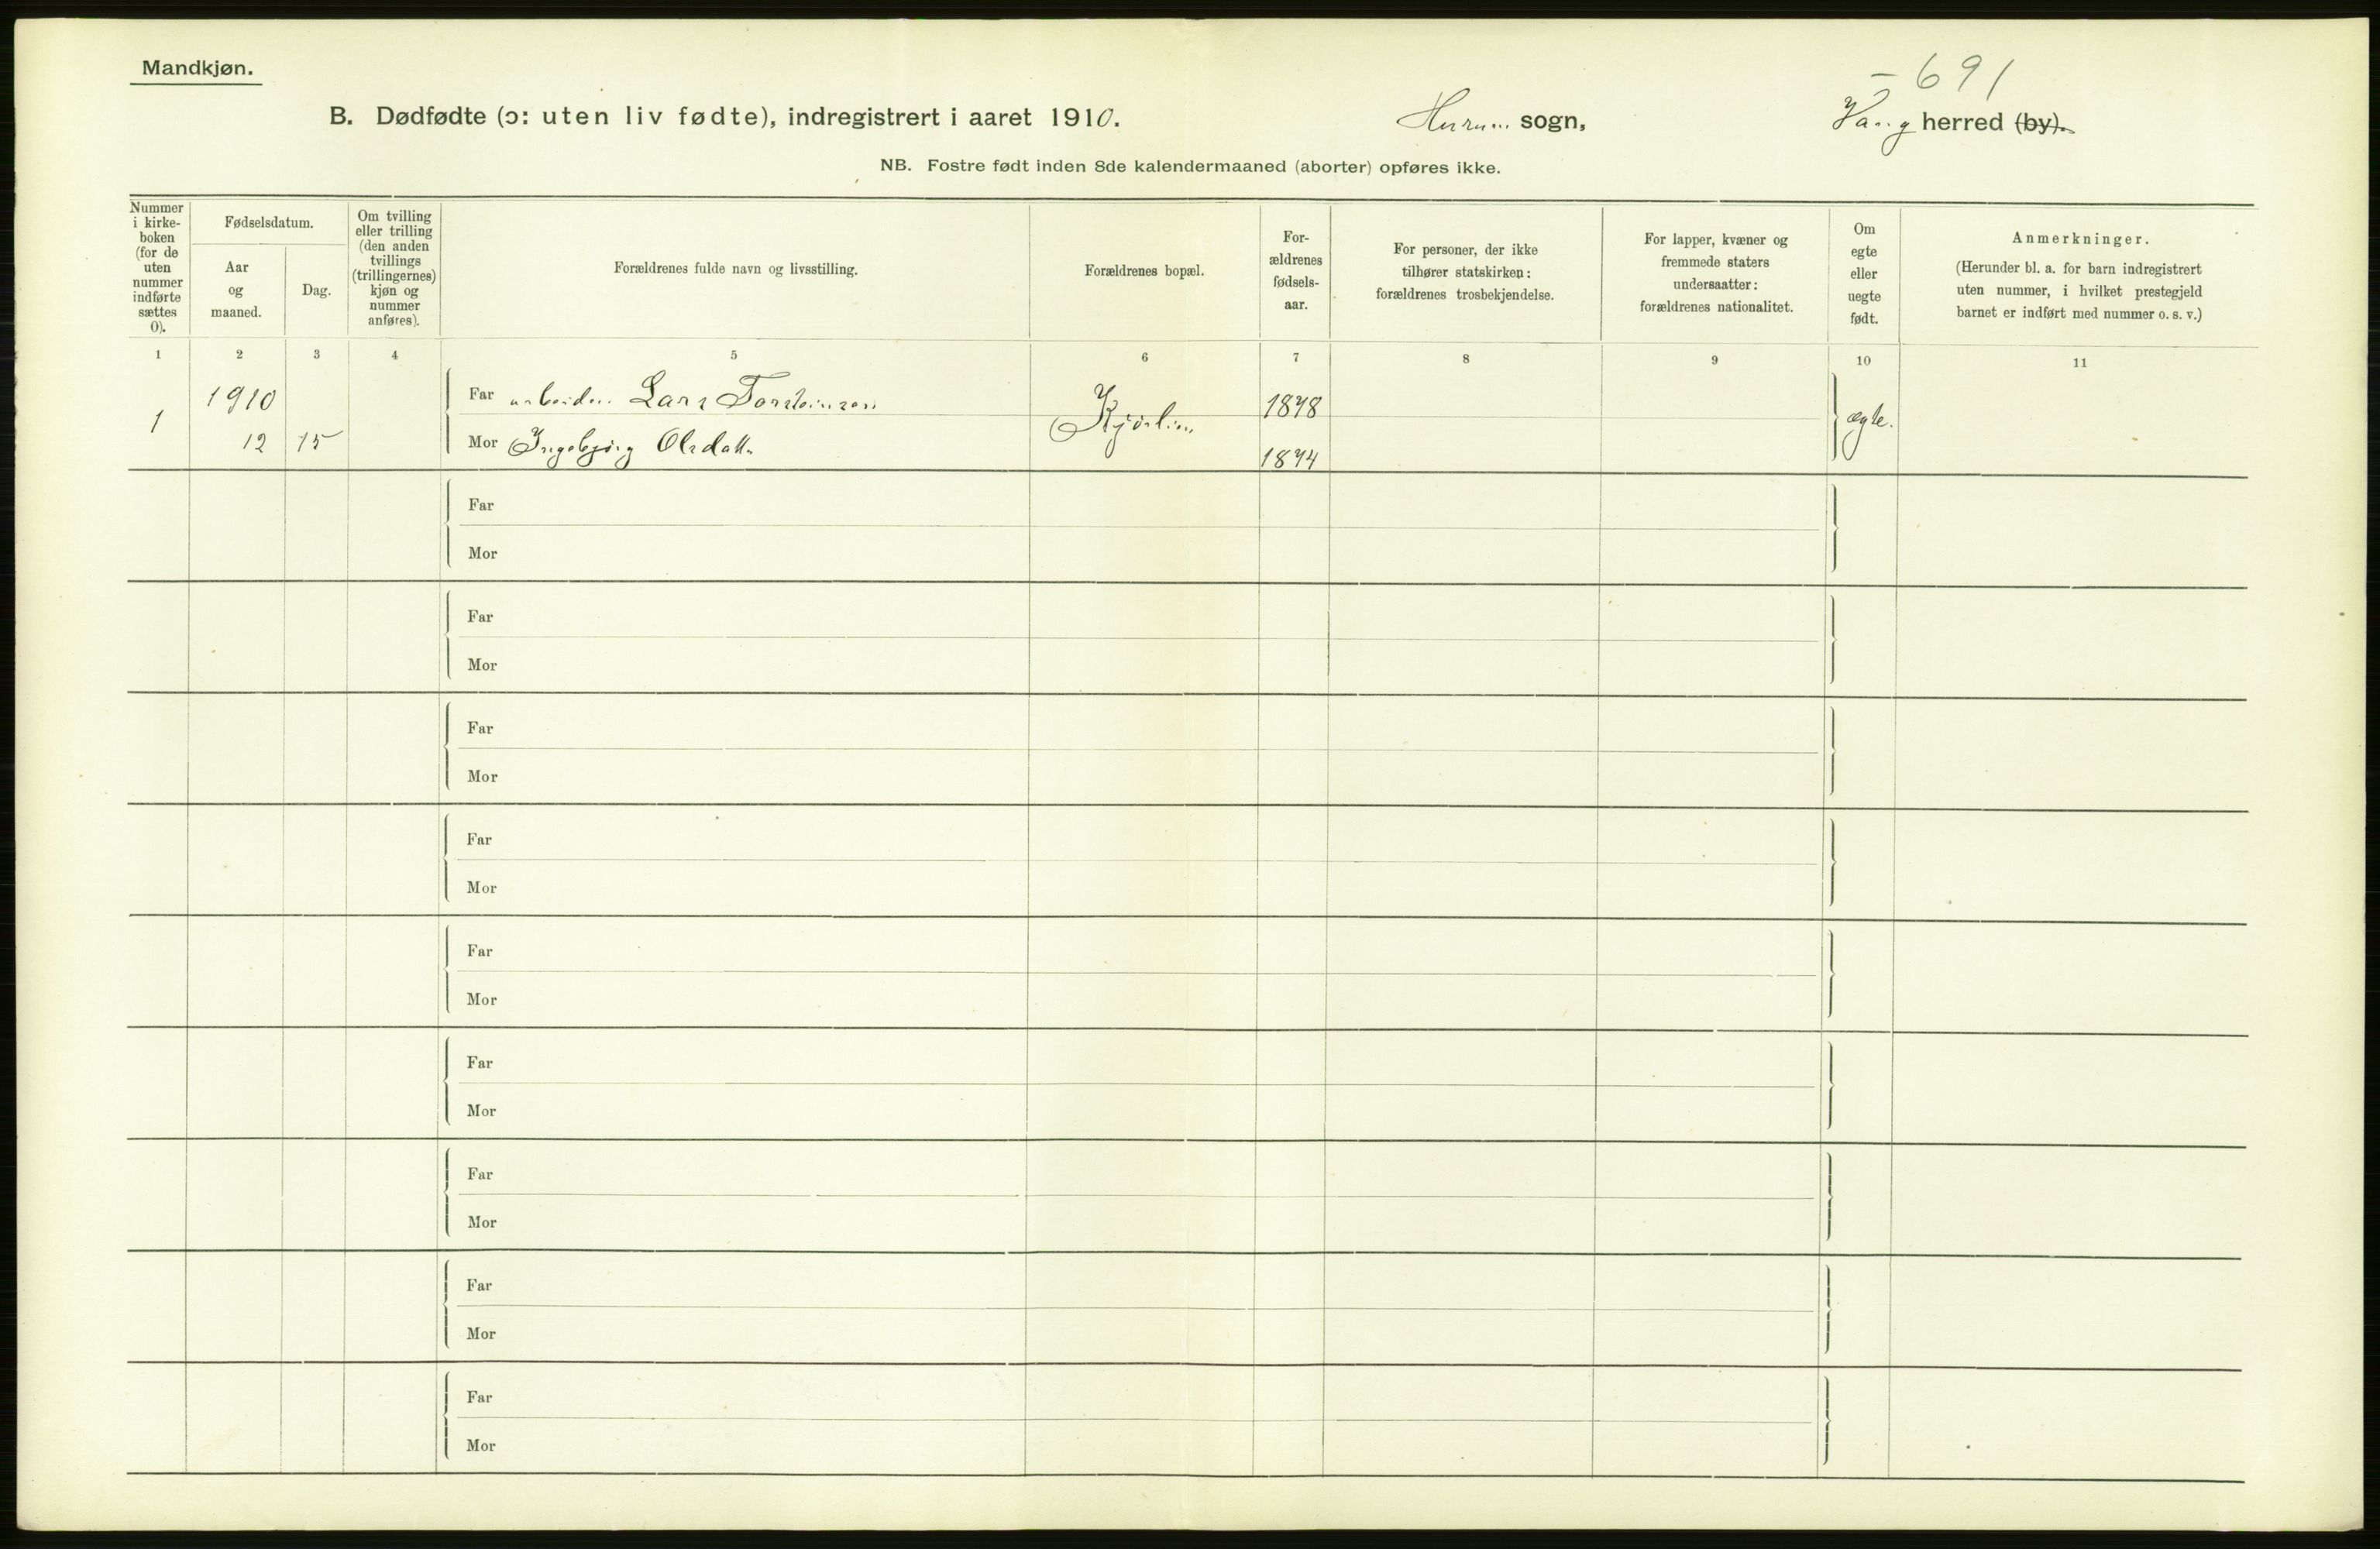 Mandkjøn.
- 691
B. Dødfødte (ɔ: uten liv fødte), indregistrert i aaret 1910. Hurum sogn, Vang herred (by).
NB. Fostre født inden 8de kalendermaaned (aborter) opføres ikke.
Nummer
i kirke-
boken
(for de
uten
nummer
indførte
sættes
0).
Fødselsdatum.
Aar
og
maaned.
Dag.
Om tvilling
eller trilling
(den anden
tvillings
(trillingernes)
kjøn og
nummer
anføres).
Forældrenes fulde navn og livsstilling.
Forældrenes bopæl.
For-
ældrenes
fødsels-
aar.
For personer, der ikke
tilhører statskirken:
forældrenes trosbekjendelse.
For lapper, kvæner og
fremmede staters
undersaatter:
forældrenes nationalitet.
Om
egte
eller
uegte
født.
Anmerkninger.
(Herunder bl. a. for barn indregistrert
uten nummer, i hvilket prestegjeld
barnet er indført med nummer o. s. v.)
1 2 3 4 5 6 7 8 9 10 11
1910 Far arbeider Lars Torsteinson 1878
1 ægte.
12 15 Mor Ingebjørg Olsdatt. 1874
Far
Mor
Far
Mor
Far
Mor
Far
Mor
Far
Mor
Far
Mor
Far
Mor
Far
Mor
Far
Mor